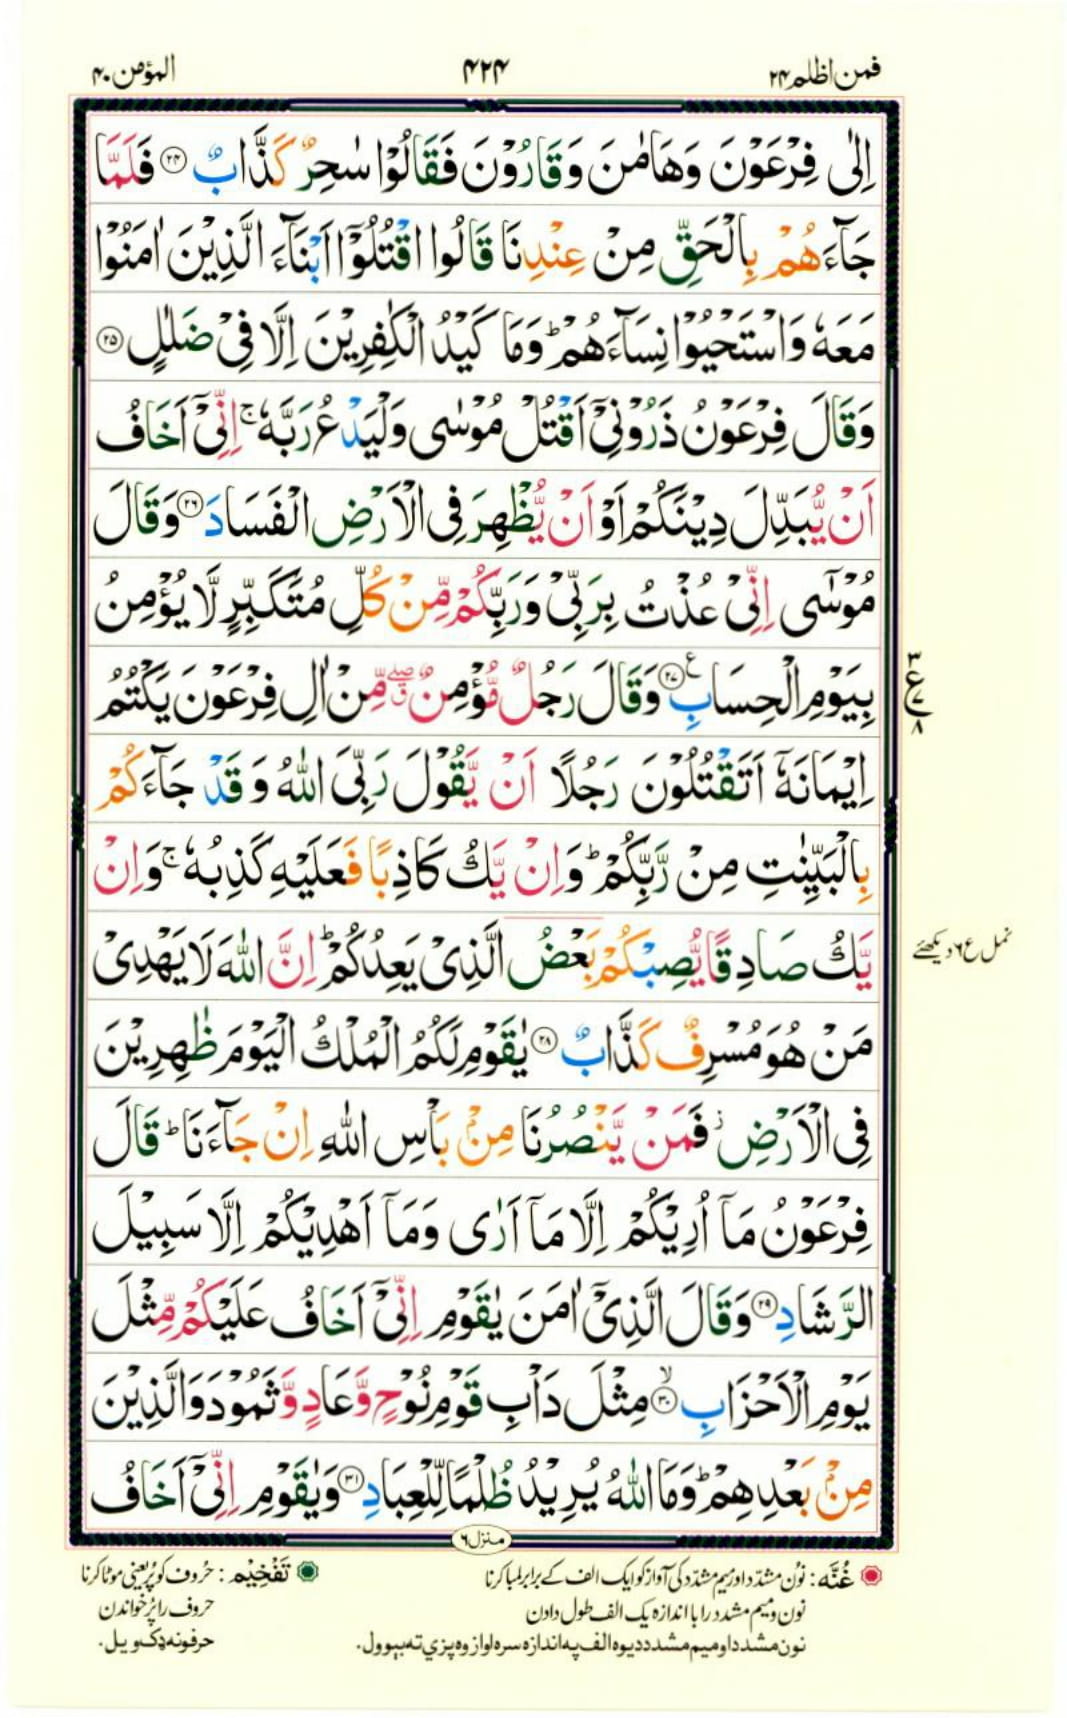 فمن اظلم ۲۴
۴۲۴
المؤمن ۴۰
اِلٰى فِرْعَوْنَ وَهَامٰنَ وَقَارُوْنَ فَقَالُوْا سٰحِرٌ كَذَّابٌ ۝۲۴ فَلَمَّا
جَآءَهُمْ بِالْحَقِّ مِنْ عِنْدِنَا قَالُوا اقْتُلُوْۤا اَبْنَآءَ الَّذِيْنَ اٰمَنُوْا
مَعَهٗ وَاسْتَحْيُوْا نِسَآءَهُمْ ؕ وَمَا كَيْدُ الْكٰفِرِيْنَ اِلَّا فِىْ ضَلٰلٍ ۝۲۵
وَقَالَ فِرْعَوْنُ ذَرُوْنِىْۤ اَقْتُلْ مُوْسٰى وَلْيَدْعُ رَبَّهٗ ۚ اِنِّىْۤ اَخَافُ
اَنْ يُّبَدِّلَ دِيْنَكُمْ اَوْ اَنْ يُّظْهِرَ فِى الْاَرْضِ الْفَسَادَ ۝۲۶ وَقَالَ
مُوْسٰٓى اِنِّىْ عُذْتُ بِرَبِّىْ وَرَبِّكُمْ مِّنْ كُلِّ مُتَكَبِّرٍ لَّا يُؤْمِنُ
بِيَوْمِ الْحِسَابِ ۝۲۷ ع وَقَالَ رَجُلٌ مُّؤْمِنٌ ۖ ق مِّنْ اٰلِ فِرْعَوْنَ يَكْتُمُ
اِيْمَانَهٗۤ اَتَقْتُلُوْنَ رَجُلًا اَنْ يَّقُوْلَ رَبِّىَ اللّٰهُ وَقَدْ جَآءَكُمْ
بِالْبَيِّنٰتِ مِنْ رَّبِّكُمْ ؕ وَاِنْ يَّكُ كَاذِبًا فَعَلَيْهِ كَذِبُهٗ ۚ وَاِنْ
يَّكُ صَادِقًا يُّصِبْكُمْ بَعْضُ الَّذِىْ يَعِدُكُمْ ؕ اِنَّ اللّٰهَ لَا يَهْدِىْ
مَنْ هُوَ مُسْرِفٌ كَذَّابٌ ۝۲۸ يٰقَوْمِ لَكُمُ الْمُلْكُ الْيَوْمَ ظٰهِرِيْنَ
فِى الْاَرْضِ ز فَمَنْ يَّنْصُرُنَا مِنْۢ بَاْسِ اللّٰهِ اِنْ جَآءَنَا ؕ قَالَ
فِرْعَوْنُ مَاۤ اُرِيْكُمْ اِلَّا مَاۤ اَرٰى وَمَاۤ اَهْدِيْكُمْ اِلَّا سَبِيْلَ
الرَّشَادِ ۝۲۹ وَقَالَ الَّذِىْۤ اٰمَنَ يٰقَوْمِ اِنِّىْۤ اَخَافُ عَلَيْكُمْ مِّثْلَ
يَوْمِ الْاَحْزَابِ ۝۳۰ ۙ مِثْلَ دَاْبِ قَوْمِ نُوْحٍ وَّعَادٍ وَّثَمُوْدَ وَالَّذِيْنَ
مِنْۢ بَعْدِهِمْ ؕ وَمَا اللّٰهُ يُرِيْدُ ظُلْمًا لِّلْعِبَادِ ۝۳۱ وَيٰقَوْمِ اِنِّىْۤ اَخَافُ
۳
ع ۷
۸
نمل ع ۶ دیکھئے
منزل ۶
غُنَّه: نون مشدّد اور میم مشدّد کی آواز کو ایک الف کے برابر لمبا کرنا
نون و میم مشدد را با اندازه یک الف طول دادن
نون مشدد او میم مشدد دیوه الف په اندازه سره اواز وه پزي ته ببوول.
تَفْخِيْم: حروف کو پُر یعنی موٹا کرنا
حروف را پُر خواندن
حرفونه ډک ویل.